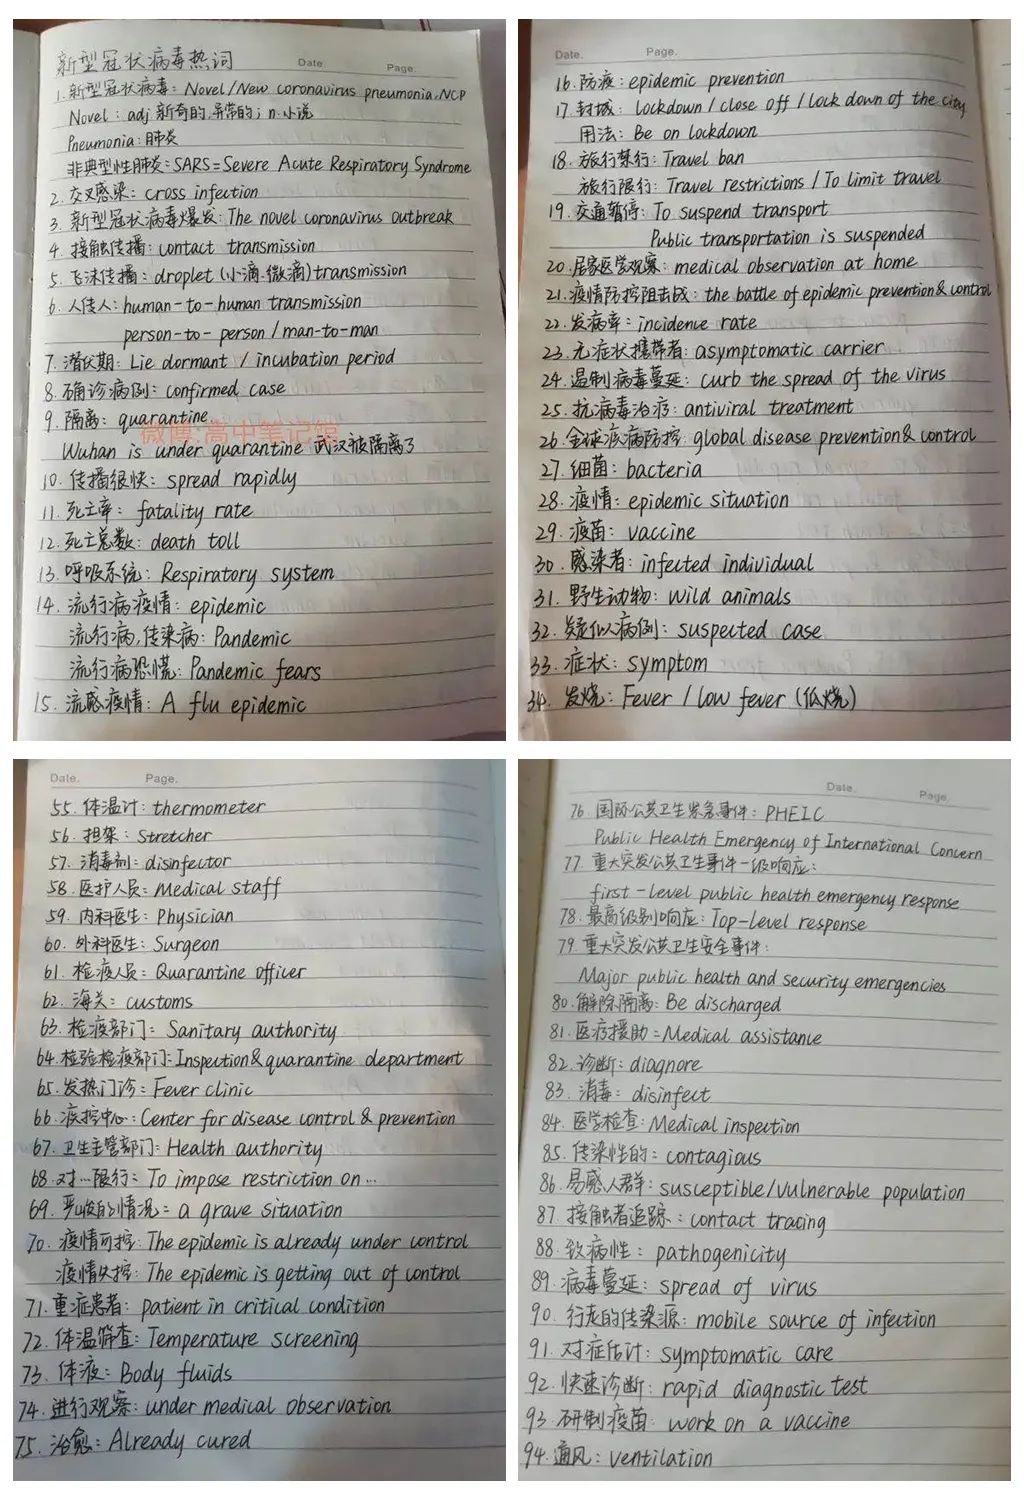 新型冠状病毒热词
Date
Page.
1. 新型冠状病毒: Novel/New coronavirus pneumonia, NCP
Novel: adj 新奇的, 异常的; n. 小说
Pneumonia: 肺炎
非典型性肺炎: SARS = Severe Acute Respiratory Syndrome
2. 交叉感染: cross infection
3. 新型冠状病毒爆发: The novel coronavirus outbreak
4. 接触传播: contact transmission
5. 飞沫传播: droplet (小滴.微滴) transmission
6. 人传人: human-to-human transmission
person-to-person / man-to-man
7. 潜伏期: Lie dormant / incubation period
8. 确诊病例: confirmed case
9. 隔离: quarantine
微博:高中笔记馆
Wuhan is under quarantine 武汉被隔离了
10. 传播很快: spread rapidly
11. 死亡率: fatality rate
12. 死亡总数: death toll
13. 呼吸系统: Respiratory system
14. 流行病疫情: epidemic
流行病, 传染病: Pandemic
流行病恐慌: Pandemic fears
15. 流感疫情: A flu epidemic
Date.
Page.
16. 防疫: epidemic prevention
17. 封城: lockdown / close off / lock down of the city
用法: Be on lockdown
18. 旅行禁行: Travel ban
旅行限行: Travel restrictions / To limit travel
19. 交通暂停: To suspend transport
Public transportation is suspended
20. 居家医学观察: medical observation at home
21. 疫情防控阻击战: the battle of epidemic prevention & control
22. 发病率: incidence rate
23. 无症状携带者: asymptomatic carrier
24. 遏制病毒蔓延: curb the spread of the virus
25. 抗病毒治疗: antiviral treatment
26. 全球疾病防控: global disease prevention & control
27. 细菌: bacteria
28. 疫情: epidemic situation
29. 疫苗: vaccine
30. 感染者: infected individual
31. 野生动物: wild animals
32. 疑似病例: suspected case
33. 症状: symptom
34. 发烧: Fever / low fever (低烧)
Date.
Page.
55. 体温计: thermometer
56. 担架: stretcher
57. 消毒剂: disinfector
58. 医护人员: Medical staff
59. 内科医生: Physician
60. 外科医生: Surgeon
61. 检疫人员: Quarantine officer
62. 海关: customs
63. 检疫部门: Sanitary authority
64. 检验检疫部门: Inspection & quarantine department
65. 发热门诊: Fever clinic
66. 疾控中心: Center for disease control & prevention
67. 卫生主管部门: Health authority
68. 对…限行: To impose restriction on …
69. 严峻的情况: a grave situation
70. 疫情可控: The epidemic is already under control
疫情失控: The epidemic is getting out of control
71. 重症患者: patient in critical condition
72. 体温筛查: Temperature screening
73. 体液: Body fluids
74. 进行观察: under medical observation
75. 治愈: Already cured
Date.
Page.
76. 国际公共卫生紧急事件: PHEIC
Public Health Emergency of International Concern
77. 重大突发公共卫生事件一级响应:
first-level public health emergency response
78. 最高级别响应: Top-level response
79. 重大突发公共卫生安全事件:
Major public health and security emergencies
80. 解除隔离: Be discharged
81. 医疗援助: Medical assistance
82. 诊断: diagnore
83. 消毒: disinfect
84. 医学检查: Medical inspection
85. 传染性的: contagious
86. 易感人群: susceptible/vulnerable population
87. 接触者追踪: contact tracing
88. 致病性: pathogenicity
89. 病毒蔓延: spread of virus
90. 行走的传染源: mobile source of infection
91. 对症估计: symptomatic care
92. 快速诊断: rapid diagnostic test
93. 研制疫苗: work on a vaccine
94. 通风: ventilation